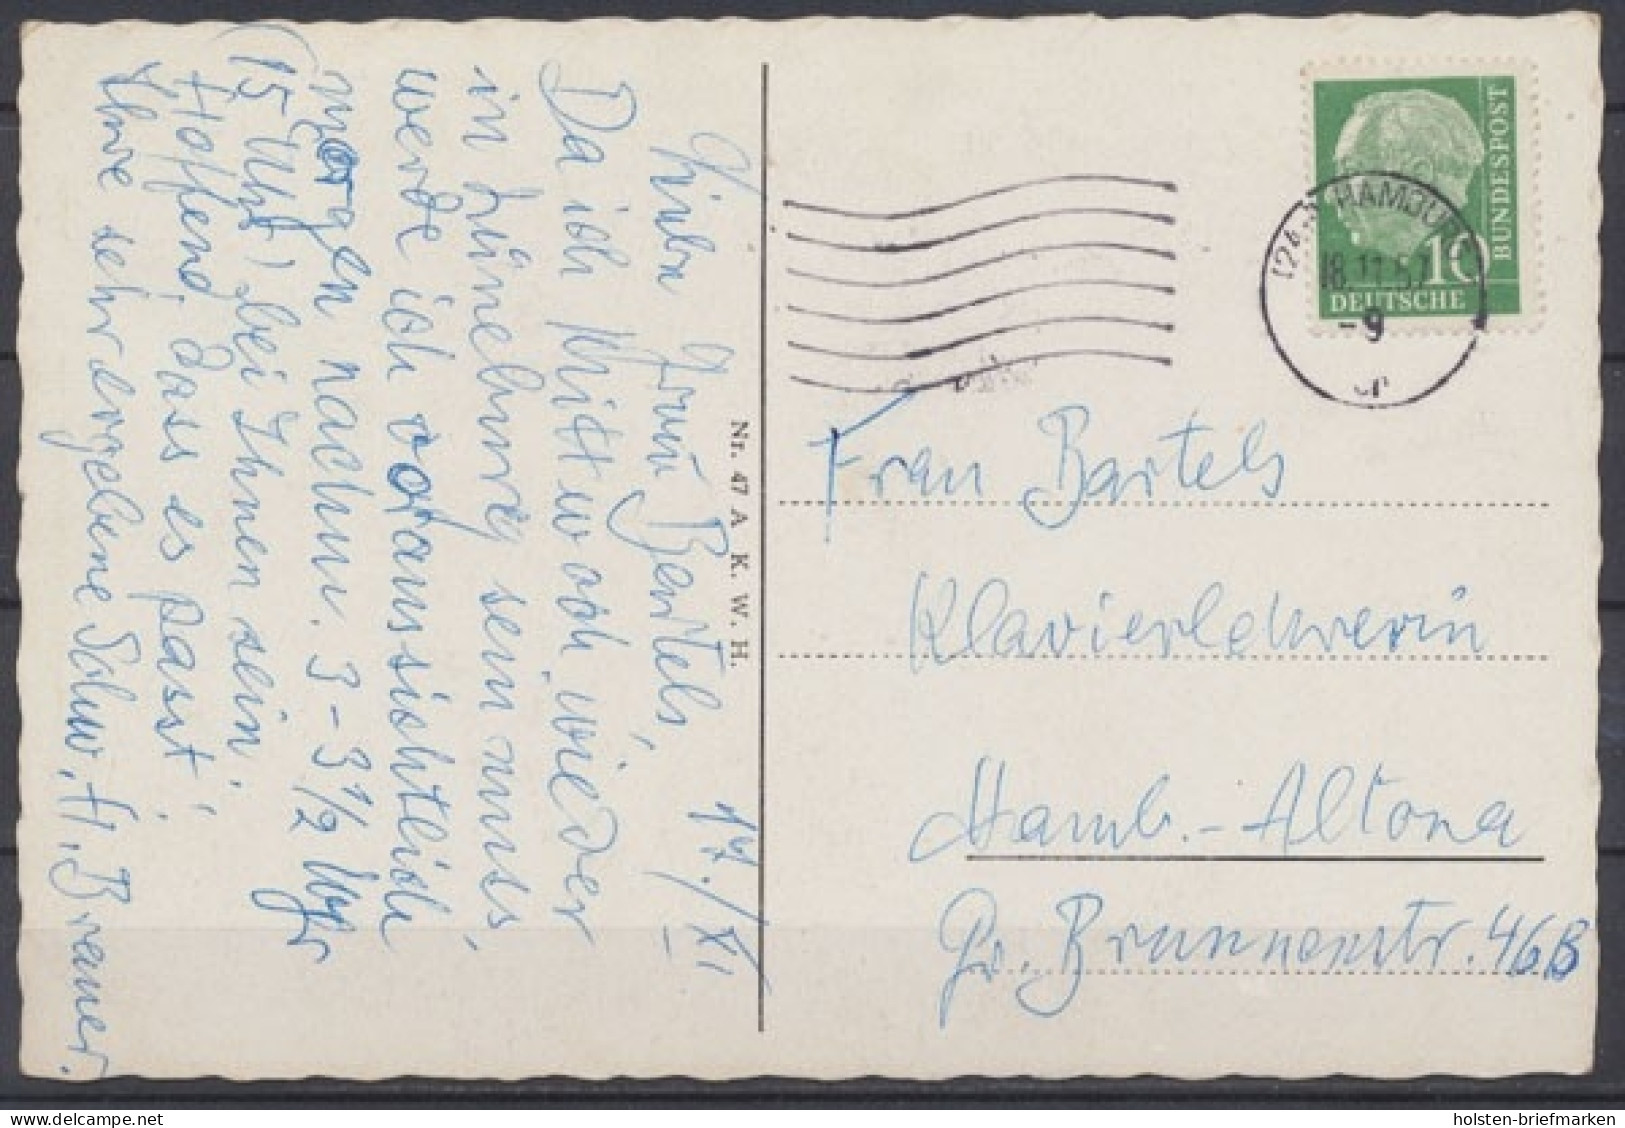 17./XI
Liebe Frau Bartels,
Da ich Mittwoch wieder
in Lüneburg sein muss,
werde ich voraussichtlich
morgen nachm. 3-3 1/2 Uhr
(15 Uhr) bei Ihnen sein.
Hoffend, dass es passt,
Ihre sehr ergebene Schw. H. Bramer.
Nr. 47 A K. W. H.
DEUTSCHE
BUNDESPOST
10
HAMBURG
18.11.57
-9
Frau Bartels
Klavierlehrerin
Hamb.-Altona
Gr. Brunnenstr. 46B
holsten-briefmarken